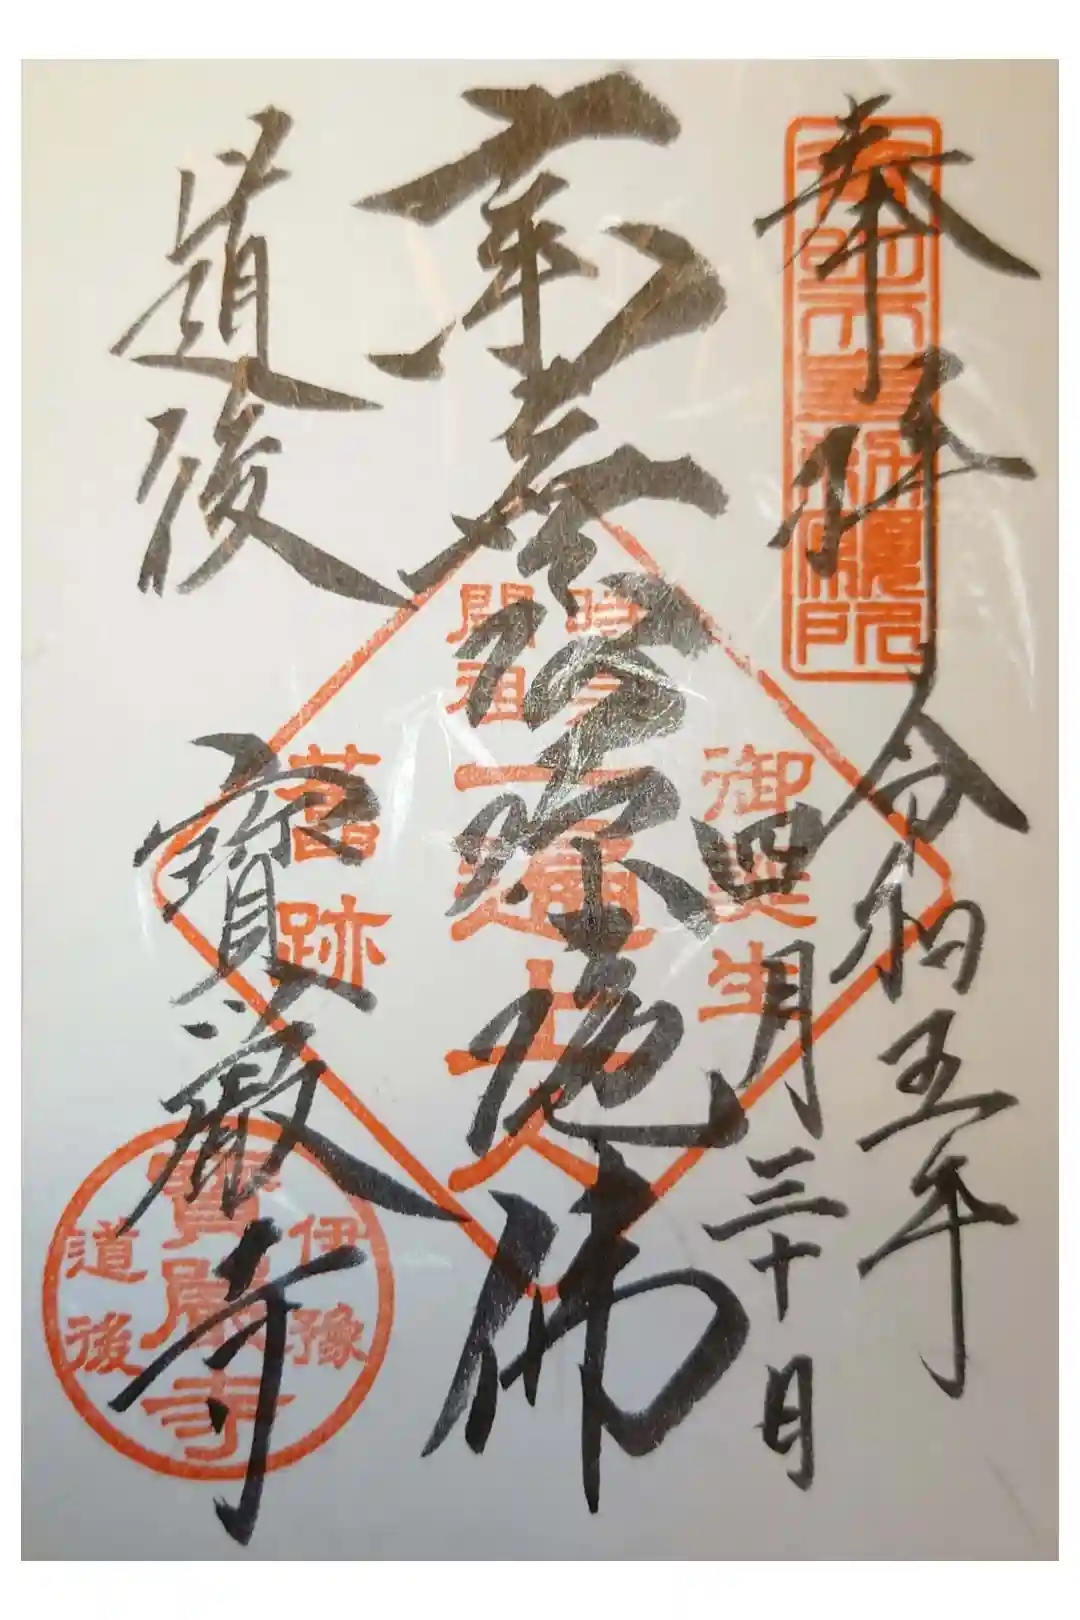 奉拝
令和五年
四月三十日
南無阿弥陀佛
道後
寶嚴寺
御誕生
時宗
開祖
一遍上人
舊跡
伊豫
寶嚴寺
道後